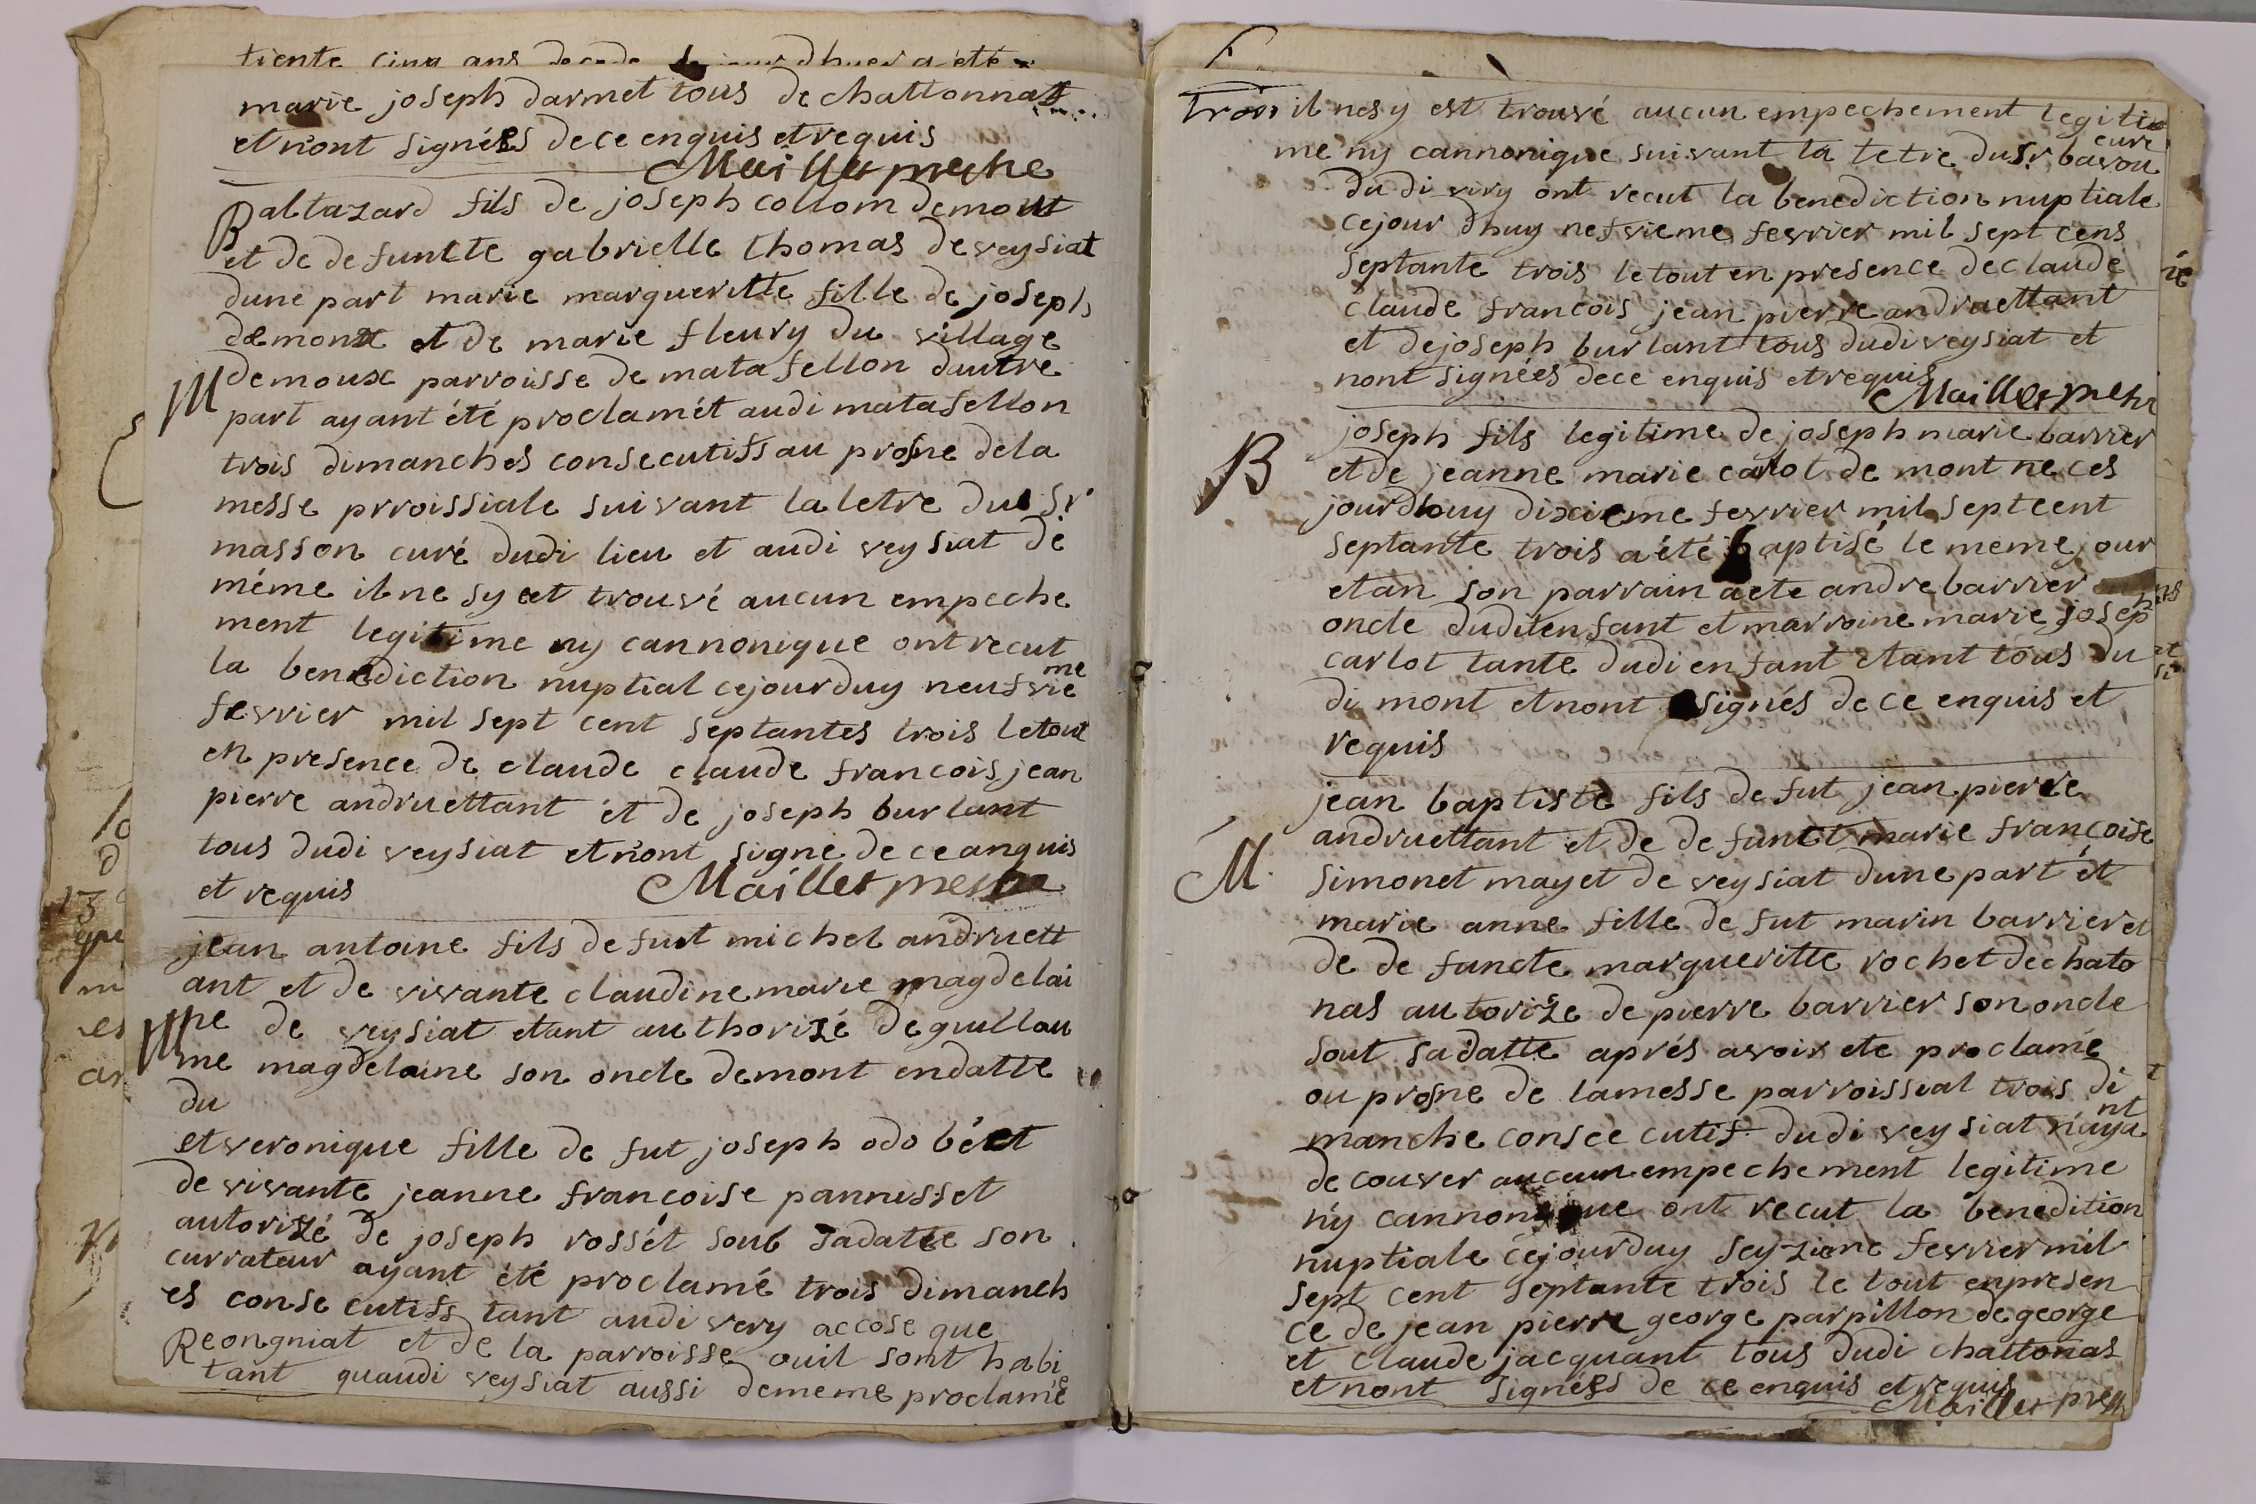 tiente cinq ans decede
marie joseph darmet tous de chattonnas
et n'ont signés de ce enquis et requis
Maillet
Baltazard fils de joseph collom demont
et de defuntte gabrielle thomas de veysiat
dune part marie margueritte fille de joseph
demont et de marie fleury du village
M
demoux parroisse de matafellon dautre
part ayant été proclamét audi matafellon
trois dimanches consecutifs au prosne dela
messe prroissiale suivant la letre du Sr
masson curé dudi lieu et audi veysiat de
méme il ne sy est trouvé aucun empeche
ment legitime ny cannonique ont recut
la benediction nuptial cejourduy neufvieme
fevrier mil sept cent septantes trois letout
en presence de claude claude francois jean
pierre andruettant et de joseph burlant
tous dudi veysiat et n'ont signe de ce anquis
et requis Maillet
jean antoine fils de fut michel andruett
ant et de vivante claudine marie magdelai
M
ne de veysiat etant authorizé de guillau
me magdelaine son oncle demont en datte
du
et veronique fille de fut joseph odobéet
de vivante jeanne francoise pannisset
autorizé de joseph rossét soub sadatte son
currateur ayant été proclamé trois dimanch
es consecutifs tant audi very accose que
Reongniat et de la parroisse ouil sont habi
tant quaudi veysiat aussi dememe proclamé
trois il nesy est trouvé aucun empechement legiti
me ny cannonique suivant la letre du Sr bavou curé
dudi viry ont recut la benediction nuptiale
cejour dhuy nefvieme fevrier mil sept cens
septante trois letout en presence de claude
claude francois jean pierre andruettant
et dejoseph burlant tous dudi veysiat et
nont signées dece enquis et requis
Maillet
joseph fils legitime de joseph marie barrier
B
et de jeanne marie carlot de mont ne ces
jourdhuy dixieme fevrier mil sept cent
septante trois a été baptisé le meme jour
et an son parrain aete andre barrier
oncle dudit enfant et marroine marie joseph
carlot tante dudi enfant etant tous du
di mont et nont signés de ce enquis et
requis
jean baptiste fils de fut jean pierre
andruettant et de defunctt marie françoise
M.
simonet mayet de veysiat dune part et
marie anne fille de fut marin barrier et
de defuncte margueritte rochet dechato
nas autorize de pierre barrier son oncle
sout sadatte aprés avoir ete proclamé
ou prosne de lamesse parroissial trois di
manche consce cutif dudi veysiat n'ayant
decouver aucun empechement legitime
n'y cannonique ont recut la benedition
nuptiale cejourduy seyzieme fevrier mil
sept cent septante trois le tout enpresen
ce de jean pierre george parpillon de george
et claude jacquant tous dudi chattonas
et nont signées de ce enquis et requis
Maillet